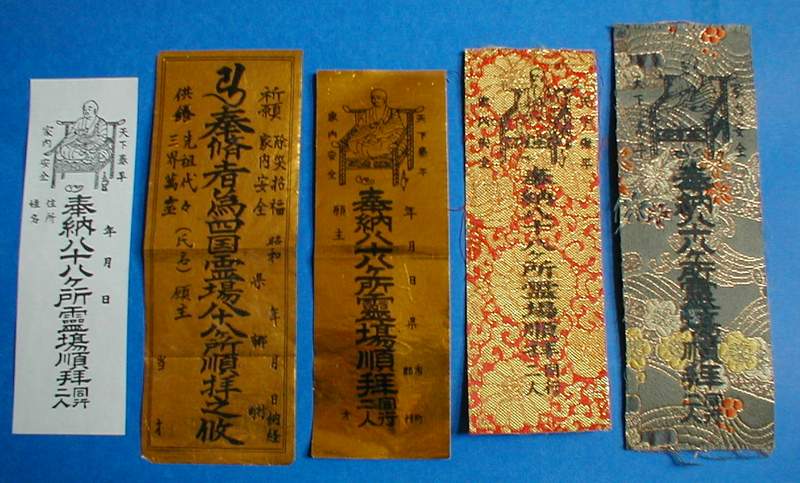 天下泰平
家内安全
年 月 日
奉納八十八ヶ所靈場順拝 同行二人
住所
姓名
祈願 除災招福
家内安全
昭和 年 月 日 納経
県 郡
奉脩者為四国霊場八十八ヶ所順拝之攸
供養 先祖代々
三界萬霊
(氏名) 願主
当 才
天下泰平
家内安全
年 月 日
県 郡 市 町 村
奉納八十八ヶ所靈場順拝 同行二人
願主
才
家内安全
奉納八十八ヶ所靈場順拝 同行二人
安全
奉納八十八ヶ所靈場順拝 同行二人